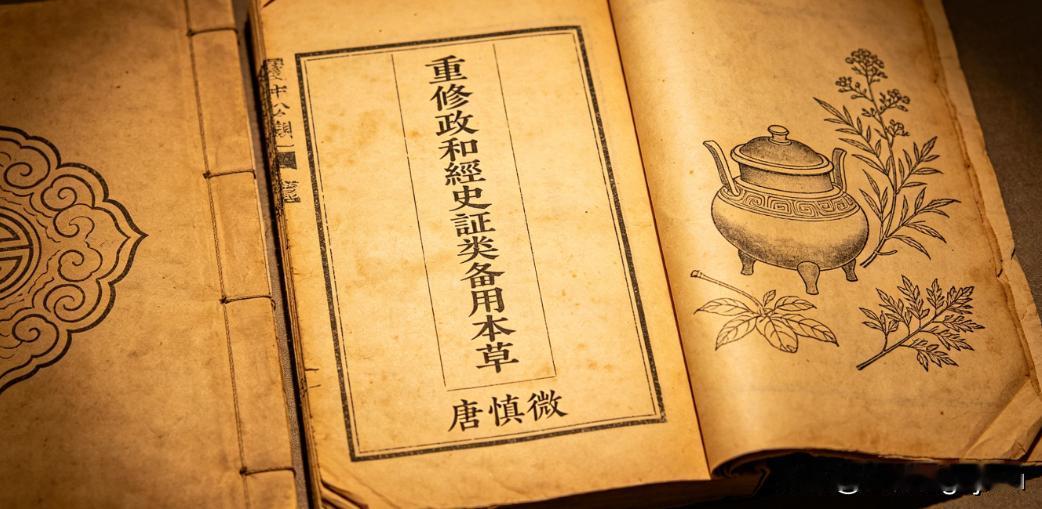 重修政和經史証类备用本草
唐慎微